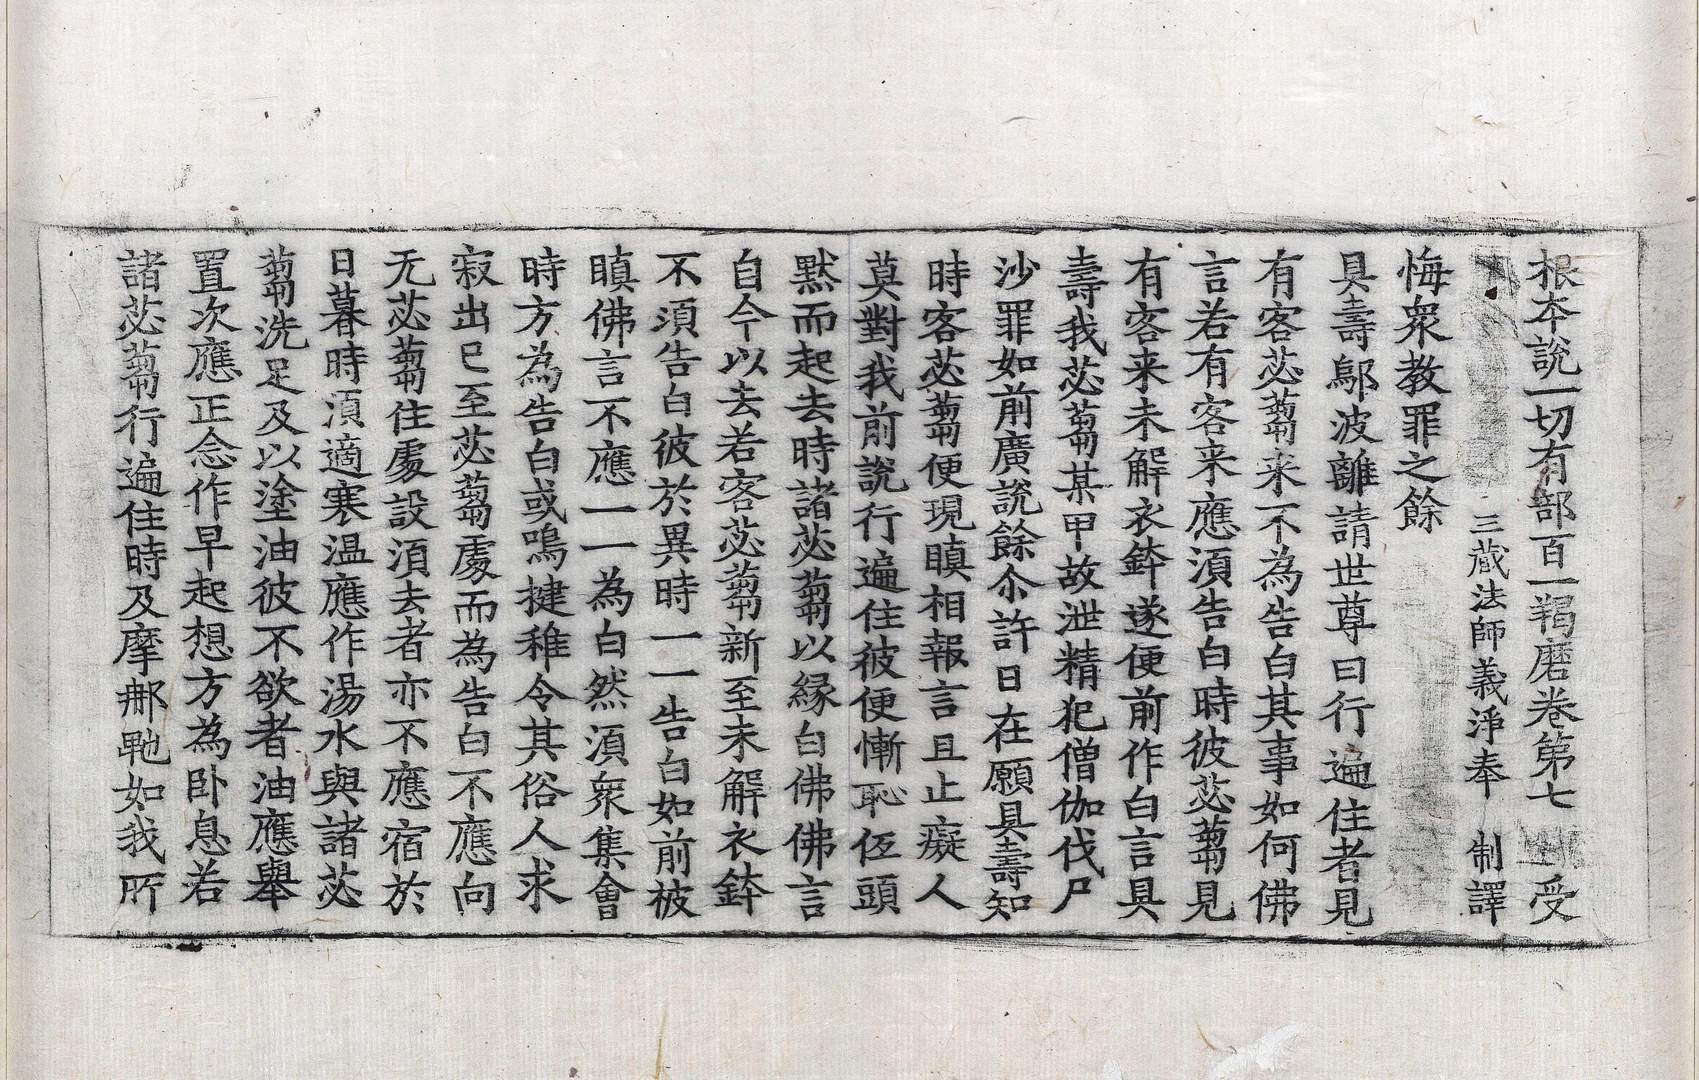 根本說一切有部百一羯磨卷第七 受
三藏法師義淨奉 制譯
悔衆教罪之餘
具壽鄔波離請世尊曰行遍住者見
有客苾蒭來不為告白其事如何佛
言若有客来應湏告白時彼苾蒭見
有客来未解衣鉢遂便前作白言具
壽我苾蒭某甲故泄精犯僧伽伐尸
沙罪如前廣說餘尒許日在願具壽知
時客苾蒭便現瞋相報言且止癡人
莫對我前説行遍住彼便慚恥伍頭
黙而起去時諸苾蒭以縁白佛佛言
自今以去若客苾蒭新至未解衣鉢
不湏告白彼於異時一一告白如前被
瞋佛言不應一一為白然湏衆集會
時方為告白或鳴揵稚令其俗人求
寂出已至苾蒭處而為告白不應向
无苾蒭住處設湏去者亦不應宿於
日暮時湏適寒温應作湯水與諸苾
蒭洗足及以塗油彼不欲者油應舉
置次應正念作早起想方為卧息若
諸苾蒭行遍住時及摩那𠼝如我所